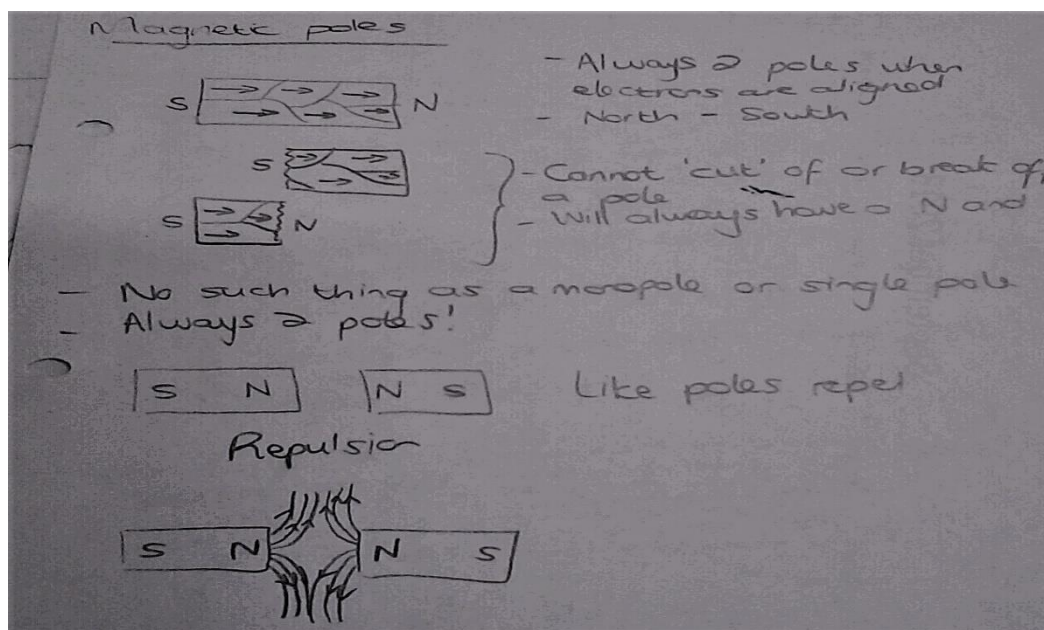 Magnetic poles
- Always 2 poles when
electrons are aligned
- North - South
S N
S
- Cannot 'cut' of or break of
a pole
- Will always have a N and
S N
- No such thing as a monopole or single pole
- Always 2 poles!
S N N S Like poles repel
Repulsion
S N N S